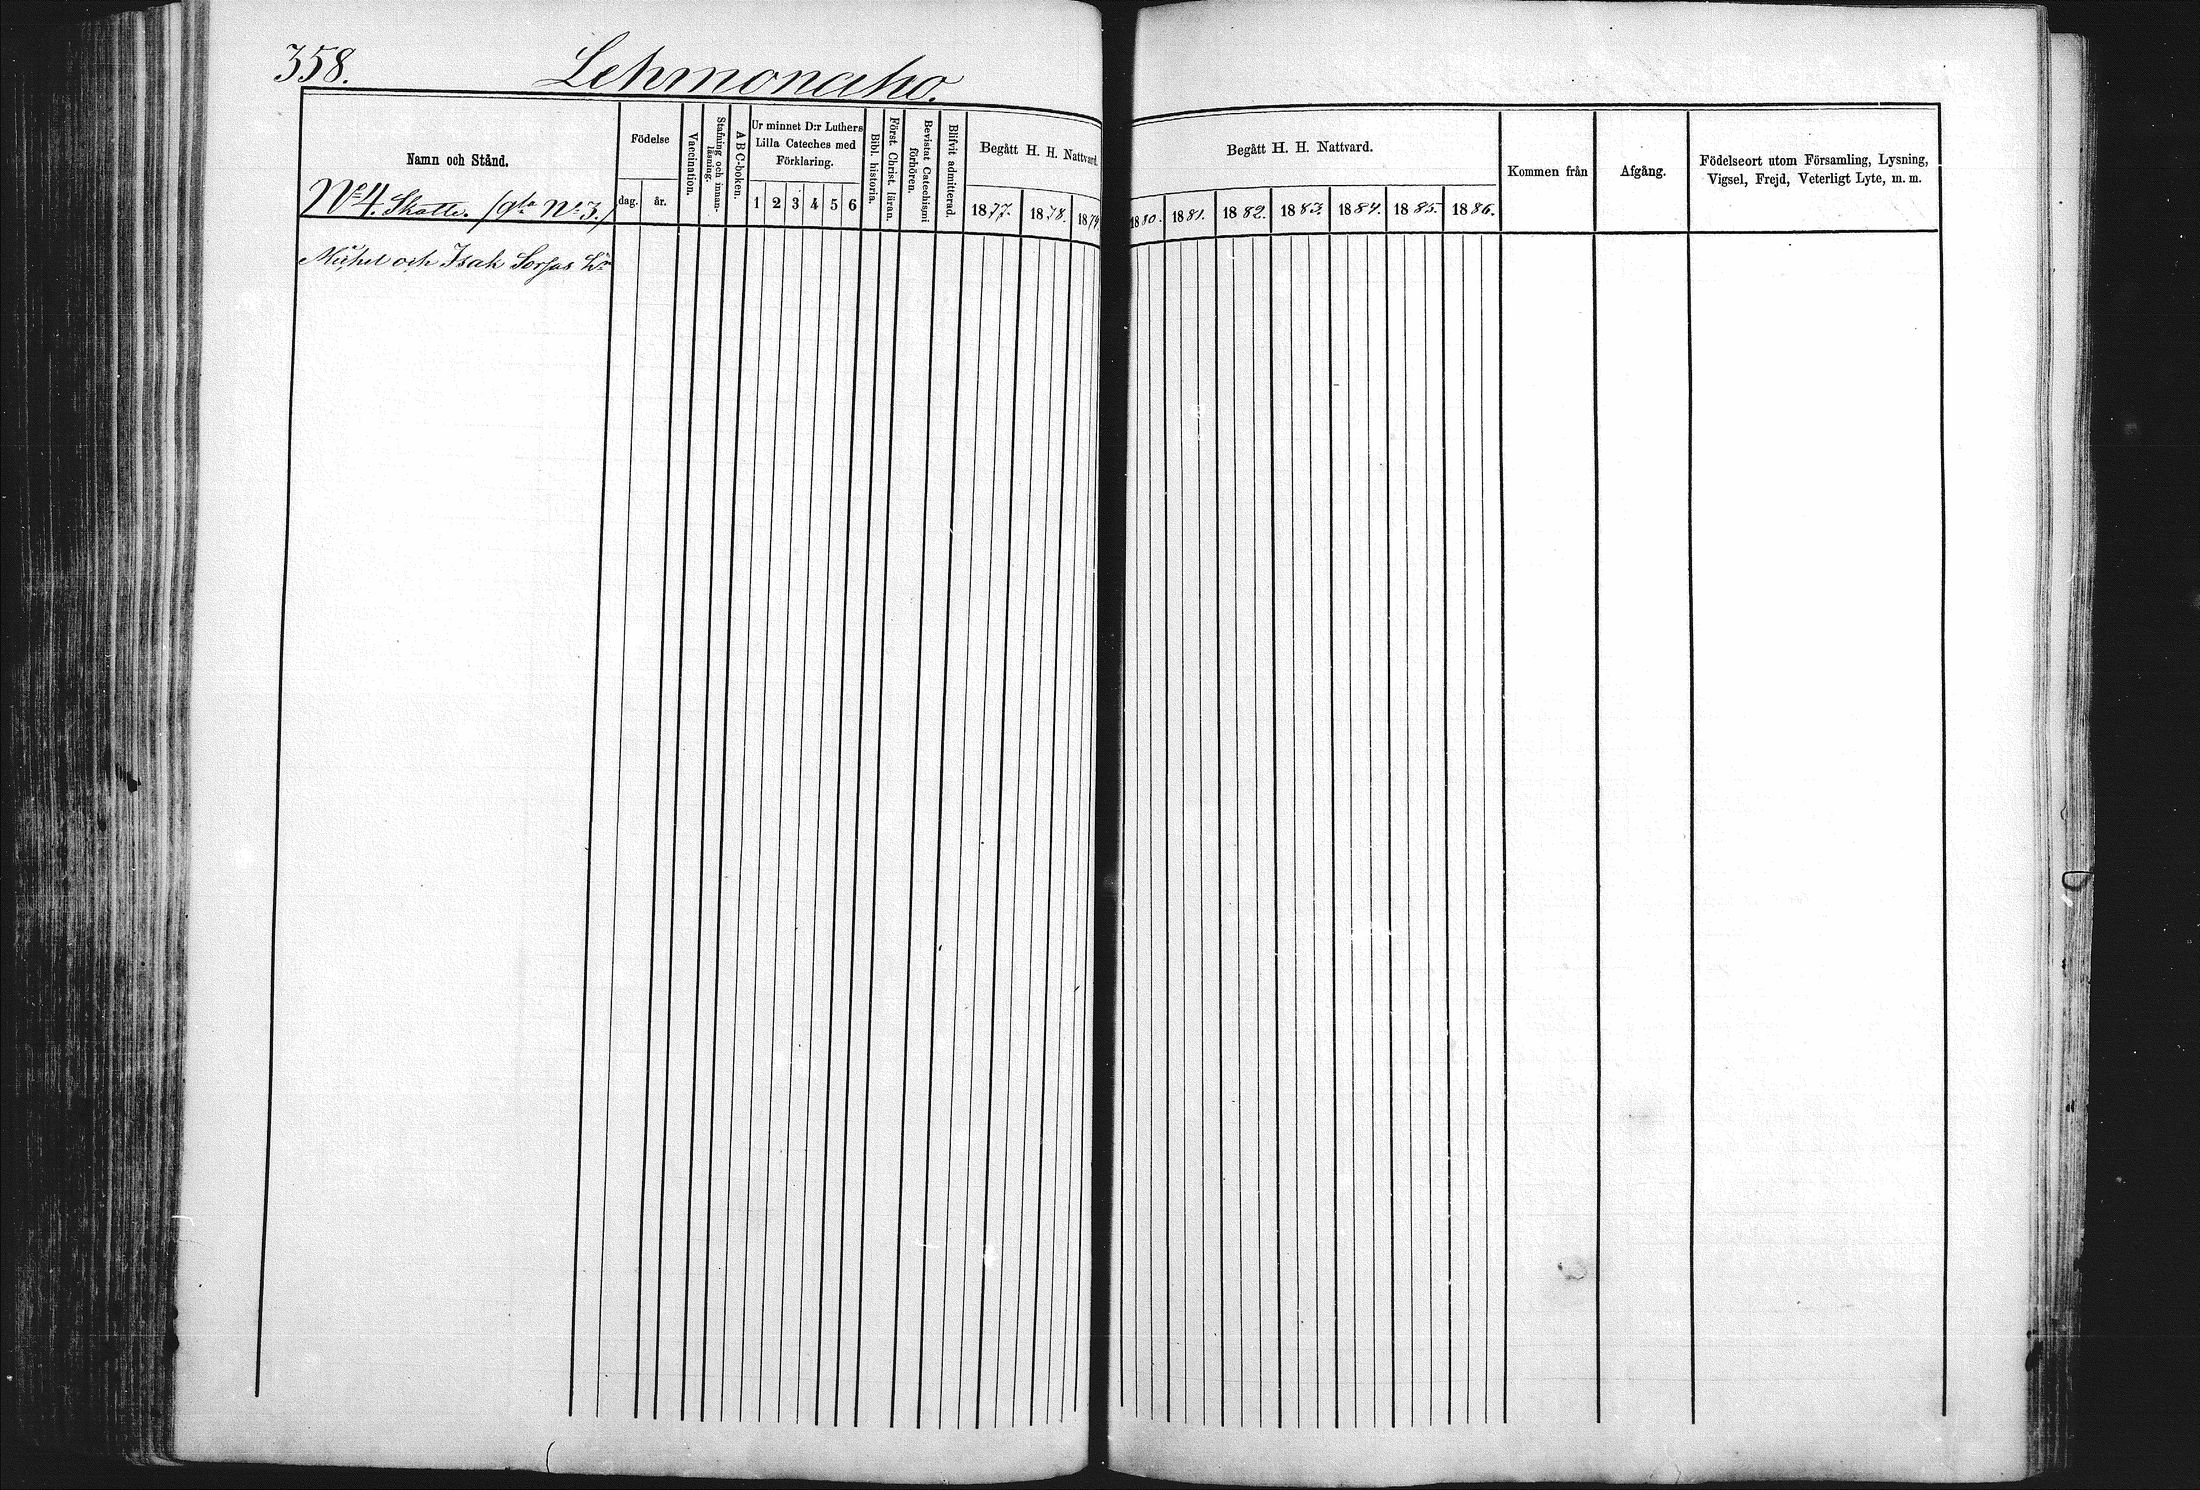 358.
Lehmonaho.
Namn och Stånd.
No 4. Skatte. (gla No 3.)
Födelse
dag. år.
Vaccination.
Stafning och innan-
läsning.
A B C-boken.
Ur minnet D:r Luthers
Lilla Cateches med
Förklaring.
1 2 3 4 5 6
Bibl. historia.
Först. Christ. läran.
Bevistat Catechismi
förhören.
Blifvit admitterad.
Begått H. H. Nattvard.
1877. 1878. 1879.
Begått H. H. Nattvard.
1880. 1881. 1882. 1883. 1884. 1885. 1886.
Kommen från
Afgång.
Födelseort utom Församling, Lysning,
Vigsel, Frejd, Veterligt Lyte, m. m.
Michel och Isak Sorjas